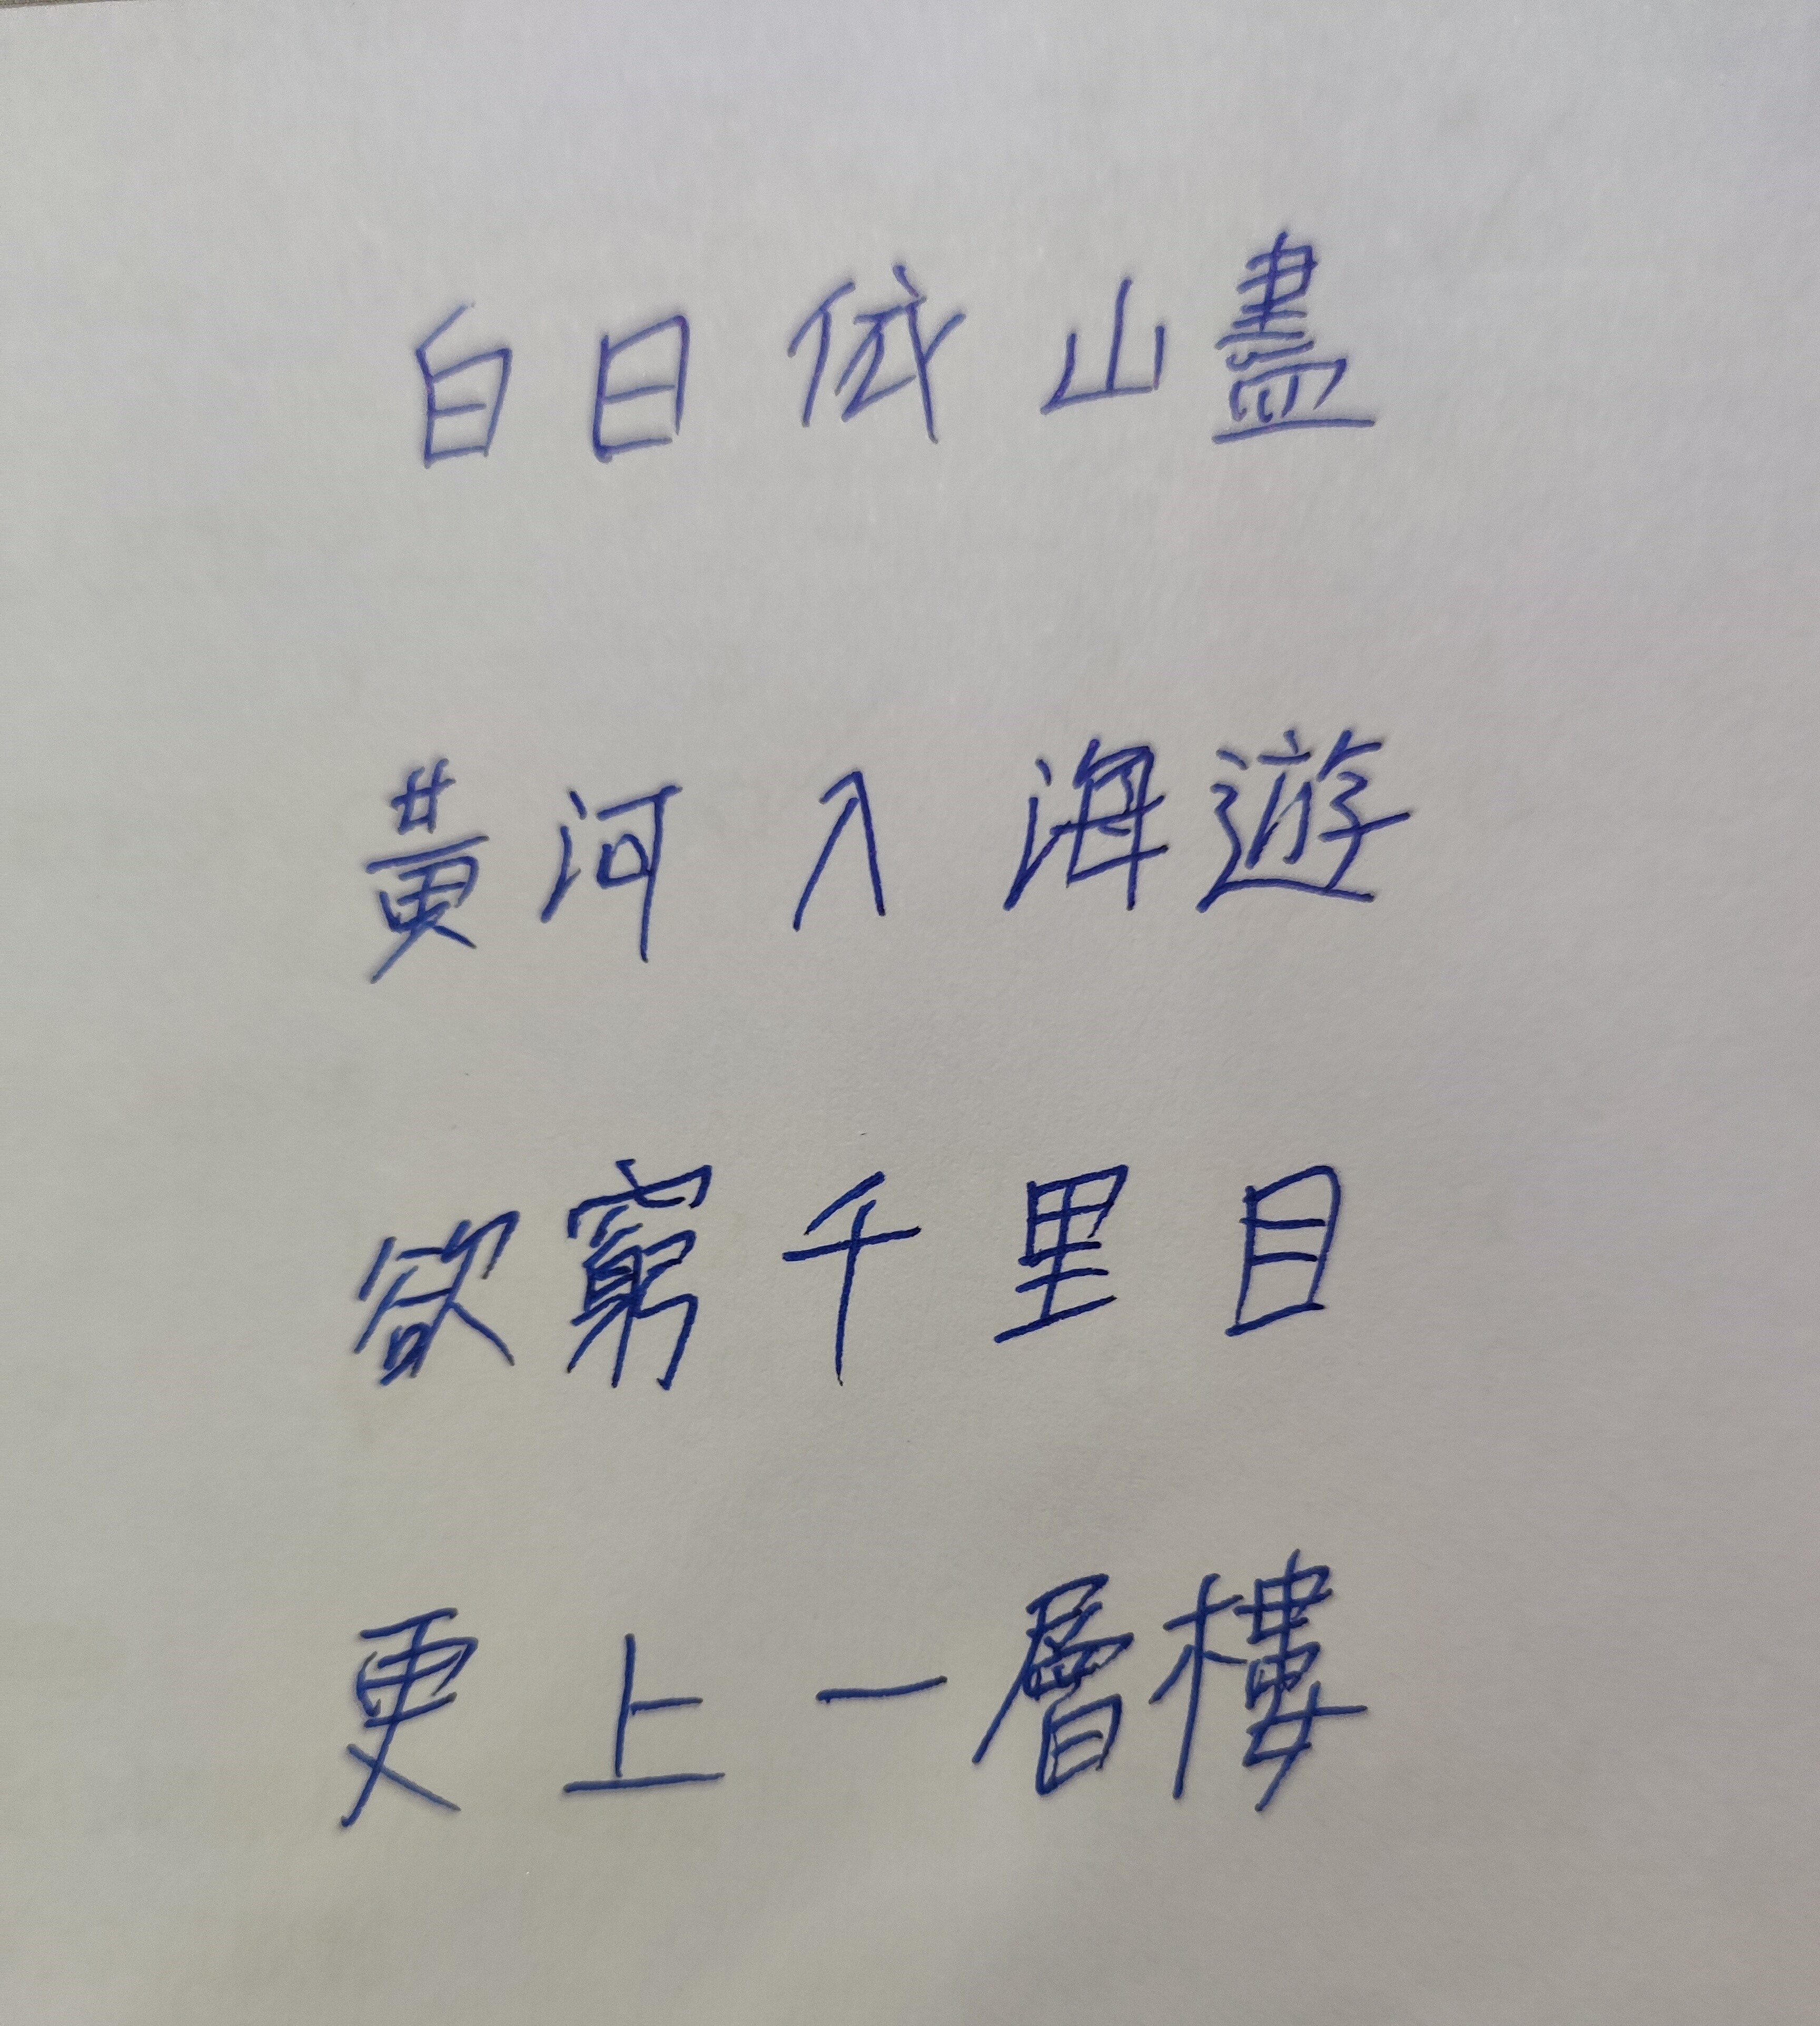 白日依山盡
黃河入海遊
欲窮千里目
更上一層樓